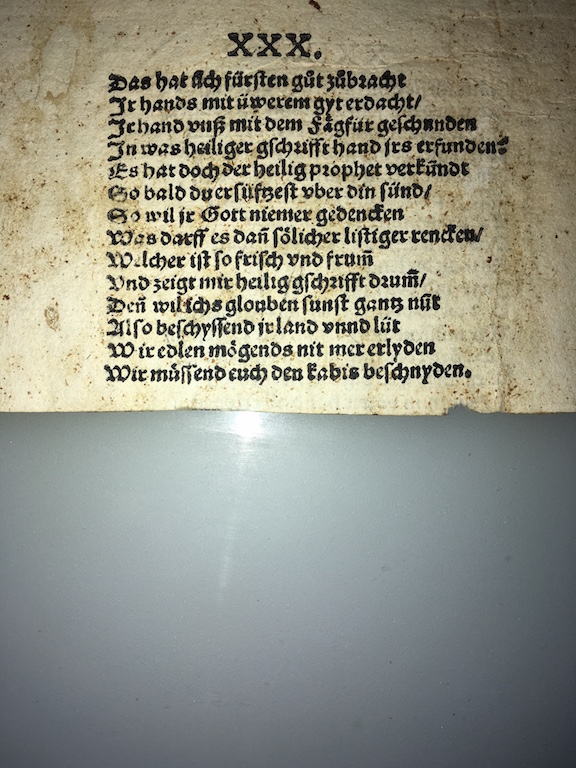 XXX.
Das hat üch fürsten gůt zůbracht
Ir hands mit üwerem gyt erdacht/
Ir hand vnß mit dem Fägfür geschunden
In was heiliger gschrifft hand jrs erfunden?
Es hat doch der heilig prophet verkündt
So bald du ersüftzest vber din sünd/
So wil jr Gott niemer gedencken
Was darff es dañ sölicher listiger rencken/
Welcher ist so frisch vnd frum̃
Vnd zeigt mir heilig gschrifft drum̃/
Deñ wil ichs glouben sunst gantz nüt
Also beschyssend jr land vnnd lüt
Wir edlen mögends nit mer erlyden
Wir müssend euch den kabis beschnyden.